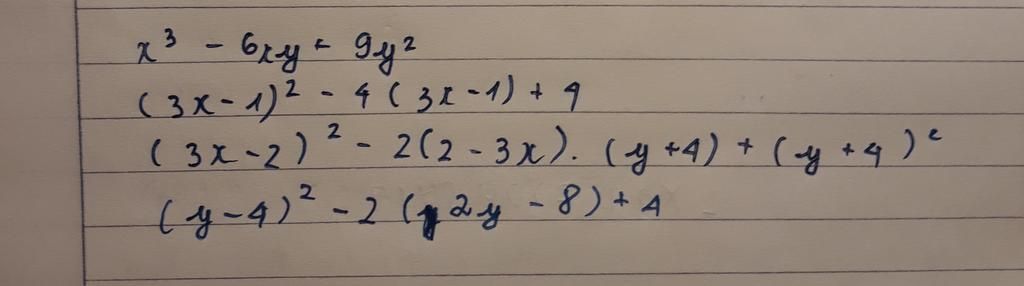 x³ - 6xy + 9y²
(3x - 1)² - 4(3x - 1) + 4
(3x - 2)² - 2(2 - 3x). (y + 4) + (y + 4)²
(y - 4)² - 2(2y - 8) + 4